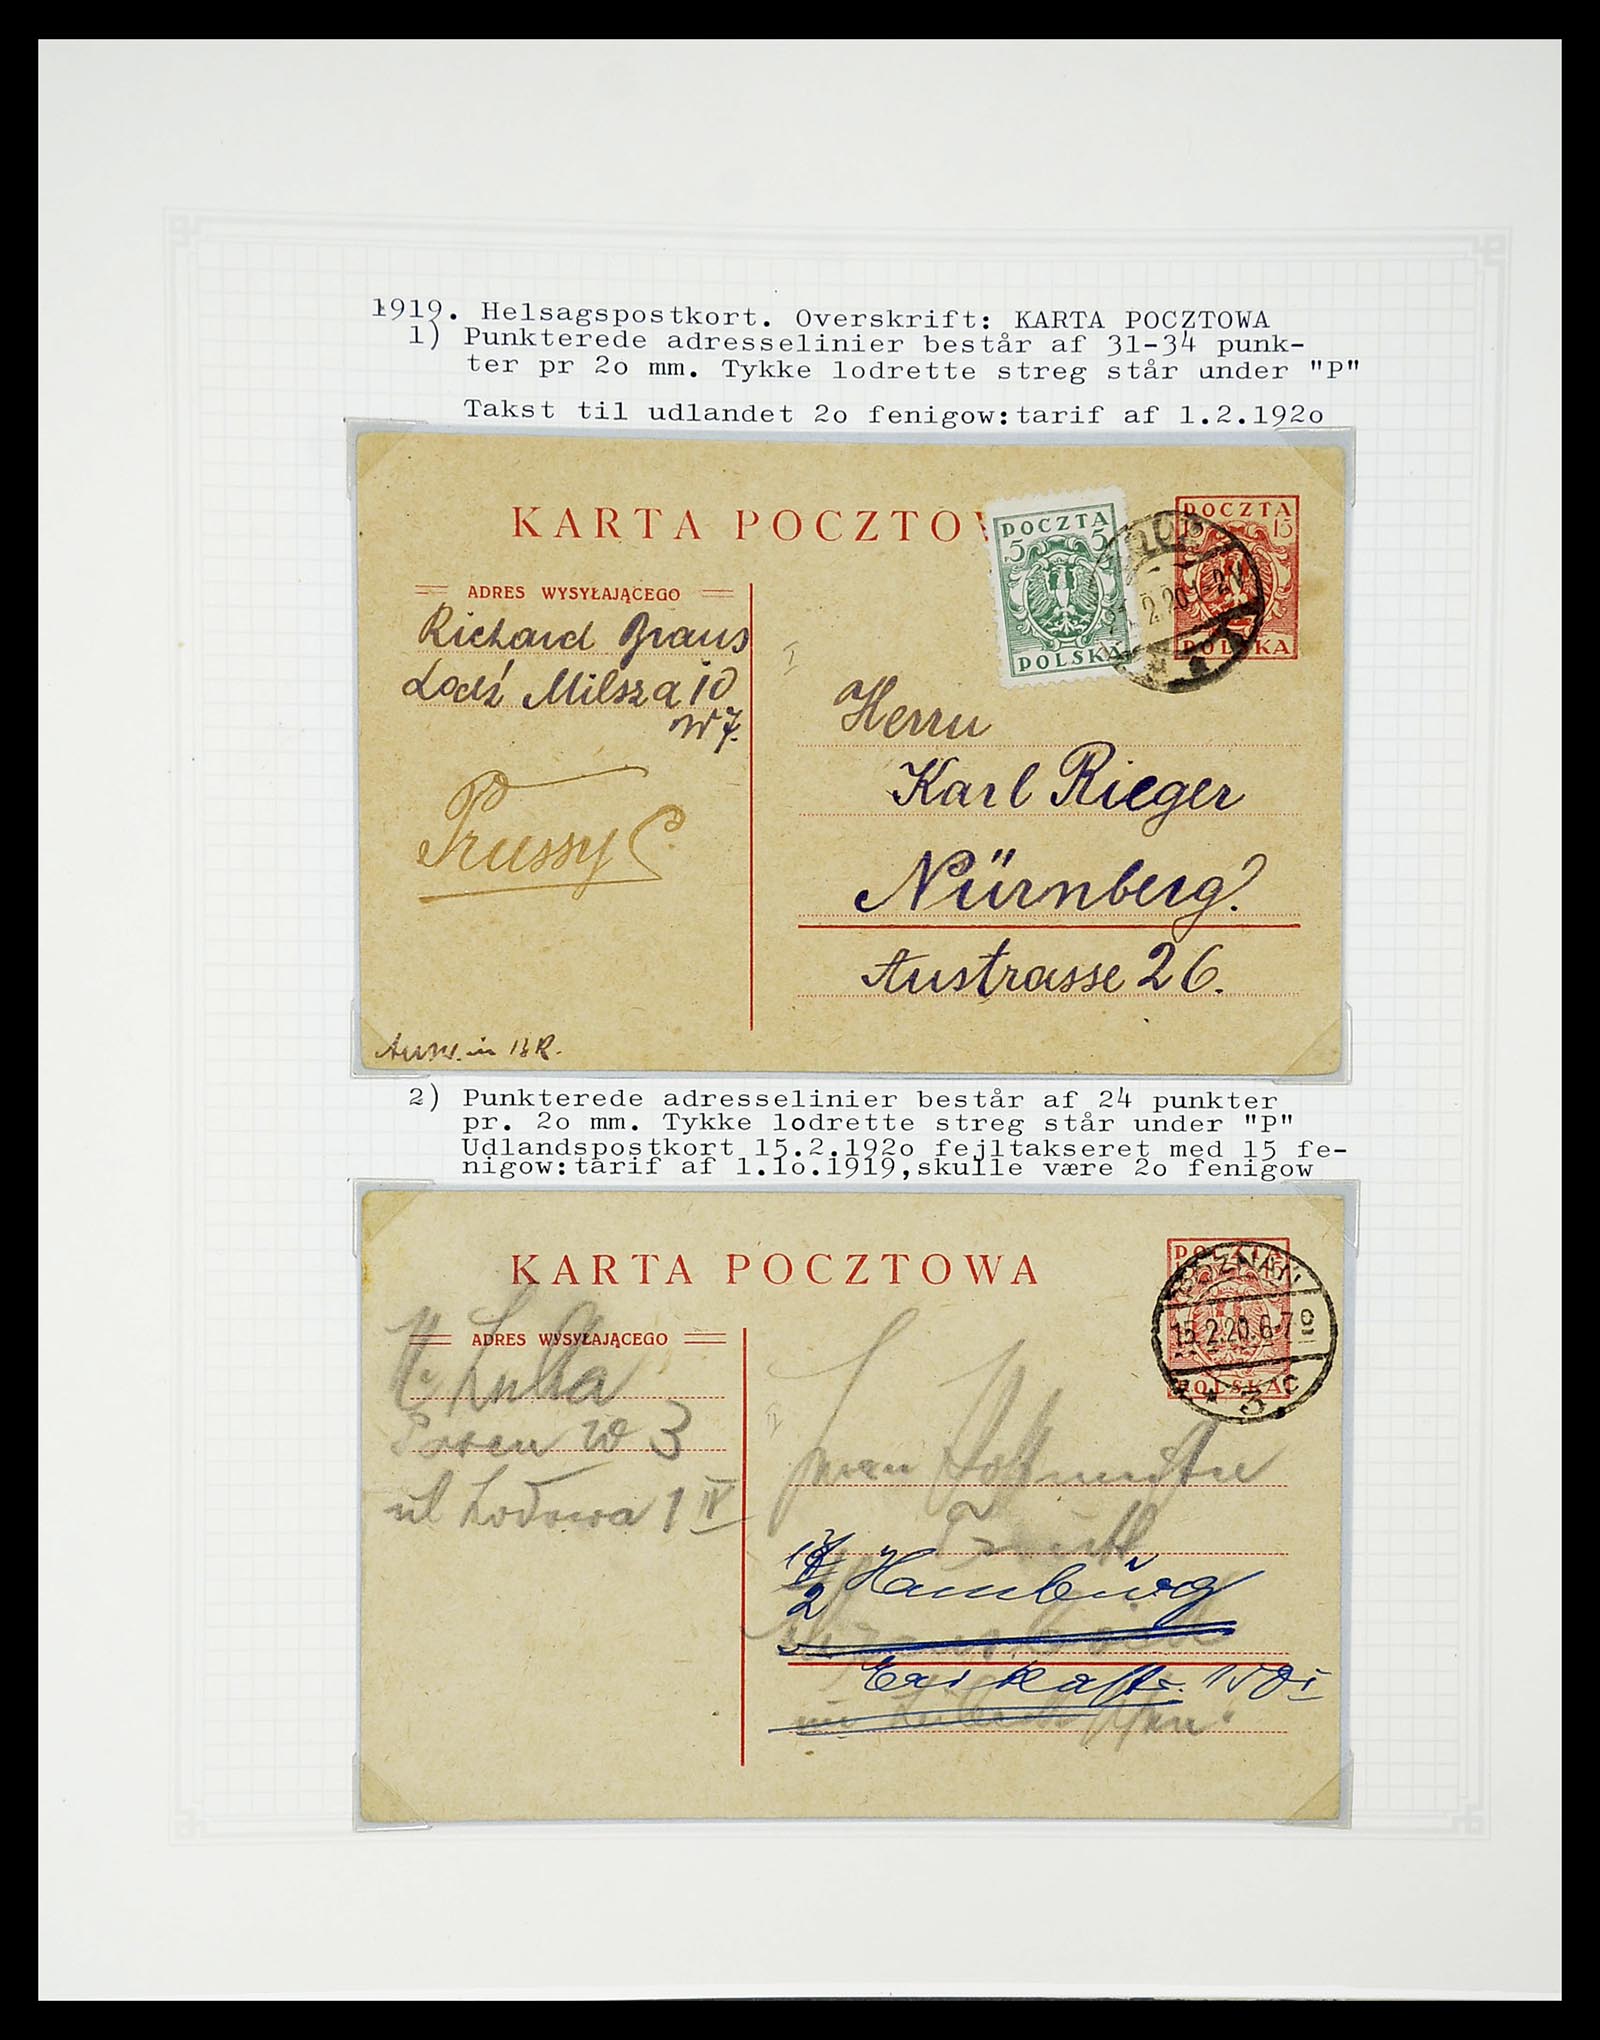 1919. Helsagspostkort. Overskrift: KARTA POCZTOWA
1) Punkterede adresselinier består af 31-34 punk-
ter pr 2o mm. Tykke lodrette streg står under "P"
Takst til udlandet 2o fenigow:tarif af 1.2.192o
KARTA POCZTO
POCZTA
5 5
POLSKA
POCZTA
15 15
POLSKA
2.20
ADRES WYSYŁAJĄCEGO
Richard
Milsza 10
W 7.
Prussy
Herrn
Karl Rieger
Nürnberg.
Austrasse 26.
in
2) Punkterede adresselinier består af 24 punkter
pr. 2o mm. Tykke lodrette streg står under "P"
Udlandspostkort 15.2.192o fejltakseret med 15 fe-
nigow:tarif af 1.1o.1919,skulle være 2o fenigow
KARTA POCZTOWA
POCZTA
POLSKA
POZNAŃ
15.2.20.6-7
* 3 c
ADRES WYSYŁAJĄCEGO
Posen W 3
ul 1 IV
Hamburg